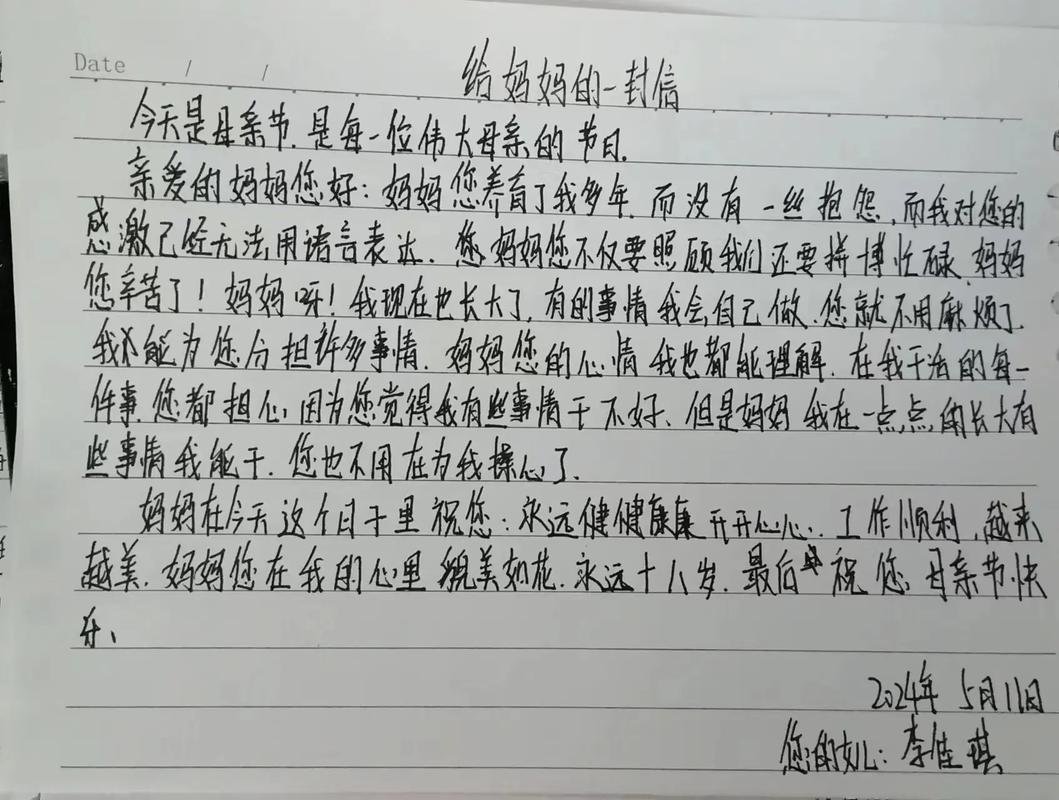 Date / /
给妈妈的一封信
今天是母亲节.是每一位伟大母亲的节日.
亲爱的妈妈您好:妈妈您养育了我多年.而没有一丝抱怨,而我对您的
感激已经无法用语言表达.您妈妈您不仅要照顾我们还要拼博忙碌.妈妈
您辛苦了!妈妈呀!我现在也长大了,有的事情我会自己做.您就不用麻烦了.
我能为您分担许多事情.妈妈您的心情我也都能理解.在我干活的每一
件事.您都担心,因为您觉得我有些事情干不好、但是妈妈我在一点点的长大有
些事情我能干.您也不用在为我操心了.
妈妈在今天这个日子里祝您:永远健健康康开开心心.工作顺利,越来
越美.妈妈您在我的心里貌美如花.永远十八岁.最后祝您:母亲节快
乐、
2024年 5月11日
您的女儿:李佳琪